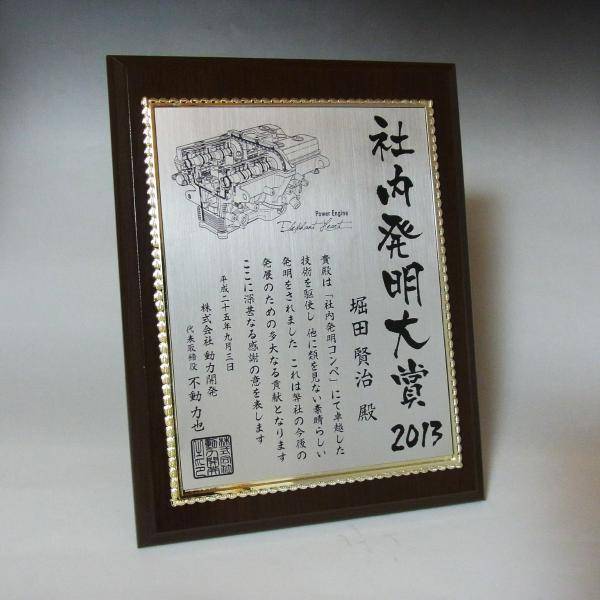 社内発明大賞
2013
堀田 賢治 殿
貴殿は「社内発明コンペ」にて卓越した
技術を駆使し 他に類を見ない素晴らしい
発明をされました これは弊社の今後の
発展のための多大なる貢献となります
ここに深甚なる感謝の意を表します
平成二十五年九月三日
株式会社 動力開発
代表取締役 不動 力也
Power Engine
Elephant Heart